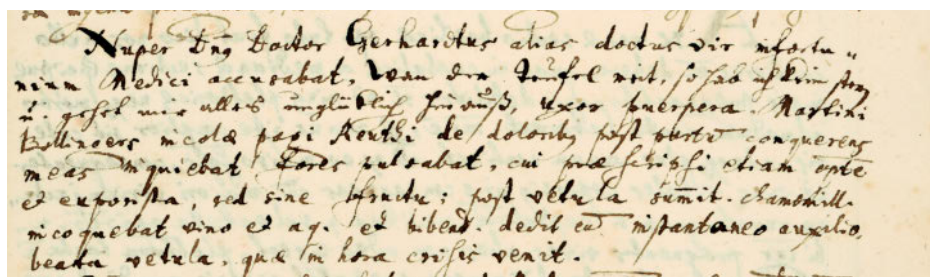 Nuper Dns Doctor Gerhardtus alias doctus vir infortu„
nium Medici accusabat, wan der teufel wil, so hab ich kein stern
u. gehet mir alles unglüklich hinauß, uxor puerpera Martini
Bollingers incolæ pagi Reuthi de dolorib9 post partũ conquerens
meas inquiebat fores pulsabat, cui præscripsi etiam opte
et euporista, sed sine fructu; post vetula sum̃it. chamomill.
incoquebat vino et aq. et bibend. dedit cũ instantaneo auxilio,
beata vetula, quæ in hora crisis venit.